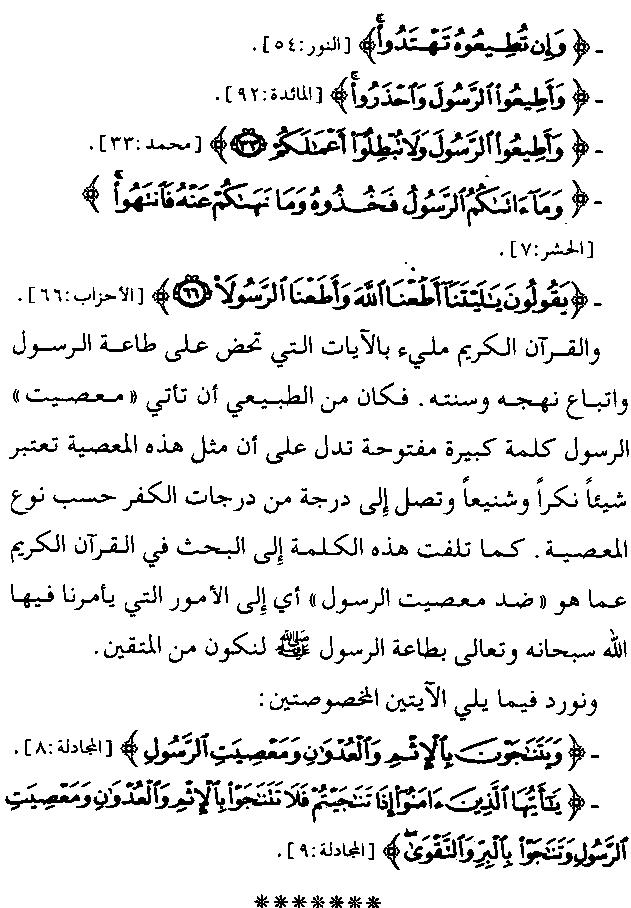 - ﴿ وَإِن تُطِيعُوهُ تَهْتَدُواْ ﴾ [النور: ٥٤].
- ﴿ وَأَطِيعُواْ ٱلرَّسُولَ وَٱحْذَرُواْ ﴾ [المائدة: ٩٢].
- ﴿ وَأَطِيعُواْ ٱلرَّسُولَ وَلَا تُبْطِلُوٓاْ أَعْمَٰلَكُمْ ٣٣ ﴾ [محمد: ٣٣].
- ﴿ وَمَآ ءَاتَىٰكُمُ ٱلرَّسُولُ فَخُذُوهُ وَمَا نَهَىٰكُمْ عَنْهُ فَٱنتَهُواْ ﴾
[الحشر: ٧].
- ﴿ يَقُولُونَ يَٰلَيْتَنَآ أَطَعْنَا ٱللَّهَ وَأَطَعْنَا ٱلرَّسُولَا۠ ٦٦ ﴾ [الأحزاب: ٦٦].
والقرآن الكريم مليء بالآيات التي تحض على طاعة الرسول
واتباع نهجه وسنته. فكان من الطبيعي أن تأتي «معصيت»
الرسول كلمة كبيرة مفتوحة تدل على أن مثل هذه المعصية تعتبر
شيئاً نكراً وشنيعاً وتصل إلى درجة من درجات الكفر حسب نوع
المعصية. كما تلفت هذه الكلمة إلى البحث في القرآن الكريم
عما هو «ضد معصيت الرسول» أي إلى الأمور التي يأمرنا فيها
الله سبحانه وتعالى بطاعة الرسول ﷺ لنكون من المتقين.
ونورد فيما يلي الآيتين المخصوصتين:
- ﴿ وَيَتَنَٰجَوْنَ بِٱلْإِثْمِ وَٱلْعُدْوَٰنِ وَمَعْصِيَتِ ٱلرَّسُولِ ﴾ [المجادلة: ٨].
- ﴿ يَٰٓأَيُّهَا ٱلَّذِينَ ءَامَنُوٓاْ إِذَا تَنَٰجَيْتُمْ فَلَا تَتَنَٰجَوْاْ بِٱلْإِثْمِ وَٱلْعُدْوَٰنِ وَمَعْصِيَتِ
ٱلرَّسُولِ وَتَنَٰجَوْاْ بِٱلْبِرِّ وَٱلتَّقْوَىٰ ﴾ [المجادلة: ٩].
*******